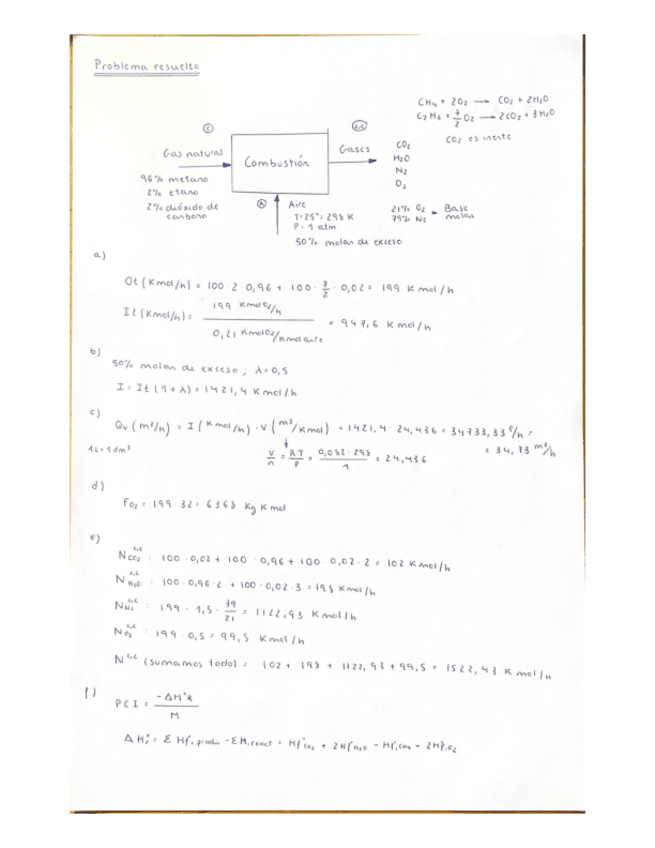 Problema resuelto
CH4 + 2O2 → CO2 + 2H2O
C2H6 + 7/2 O2 → 2CO2 + 3H2O
CO2 es inerte
C
Gas natural
96% metano
2% etano
2% dióxido de
carbono
Combustión
Gases
CO2
H2O
N2
O2
A
Aire
T=25°=298 K
P=1 atm
50% molar de exceso
21% O2
79% N2
Base
molar
a)
Ot (Kmol/h) = 100·2·0,96 + 100·7/2·0,02 = 199 Kmol/h
It (Kmol/h) = 199 KmolO2/h / 0,21 KmolO2/Kmolaire = 947,6 Kmol/h
b)
50% molar de exceso; λ=0,5
I = It (1+λ) = 1421,4 Kmol/h
c)
Qv (m³/h) = I (Kmol/h) · V (m³/Kmol) = 1421,4 · 24,436 = 34733,33 ℓ/h =
= 34,73 m³/h
1L=1dm³
V/n = RT/P = 0,082·298/1 = 24,436
d)
FO2 = 199·32 = 6368 Kg Kmol
e)
N CO2 : 100·0,02 + 100·0,96 + 100·0,02·2 = 102 Kmol/h
N H2O : 100·0,96·2 + 100·0,02·3 = 198 Kmol/h
N N2 : 199·1,5·79/21 = 1122,93 Kmol/h
N O2 : 199·0,5 = 99,5 Kmol/h
N (sumamos todo) = 102 + 198 + 1122,93 + 99,5 = 1522,43 Kmol/h
f)
PCI = -ΔH°R / M